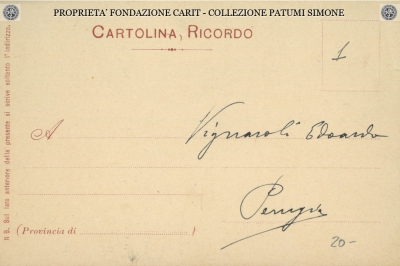 PROPRIETA' FONDAZIONE CARIT - COLLEZIONE PATUMI SIMONE
CARTOLINA RICORDO
1
A Vignaroli Edoardo
Perugia
(Provincia di )
20-
NB. Sul lato anteriore della presente si scrive soltanto l'indirizzo.